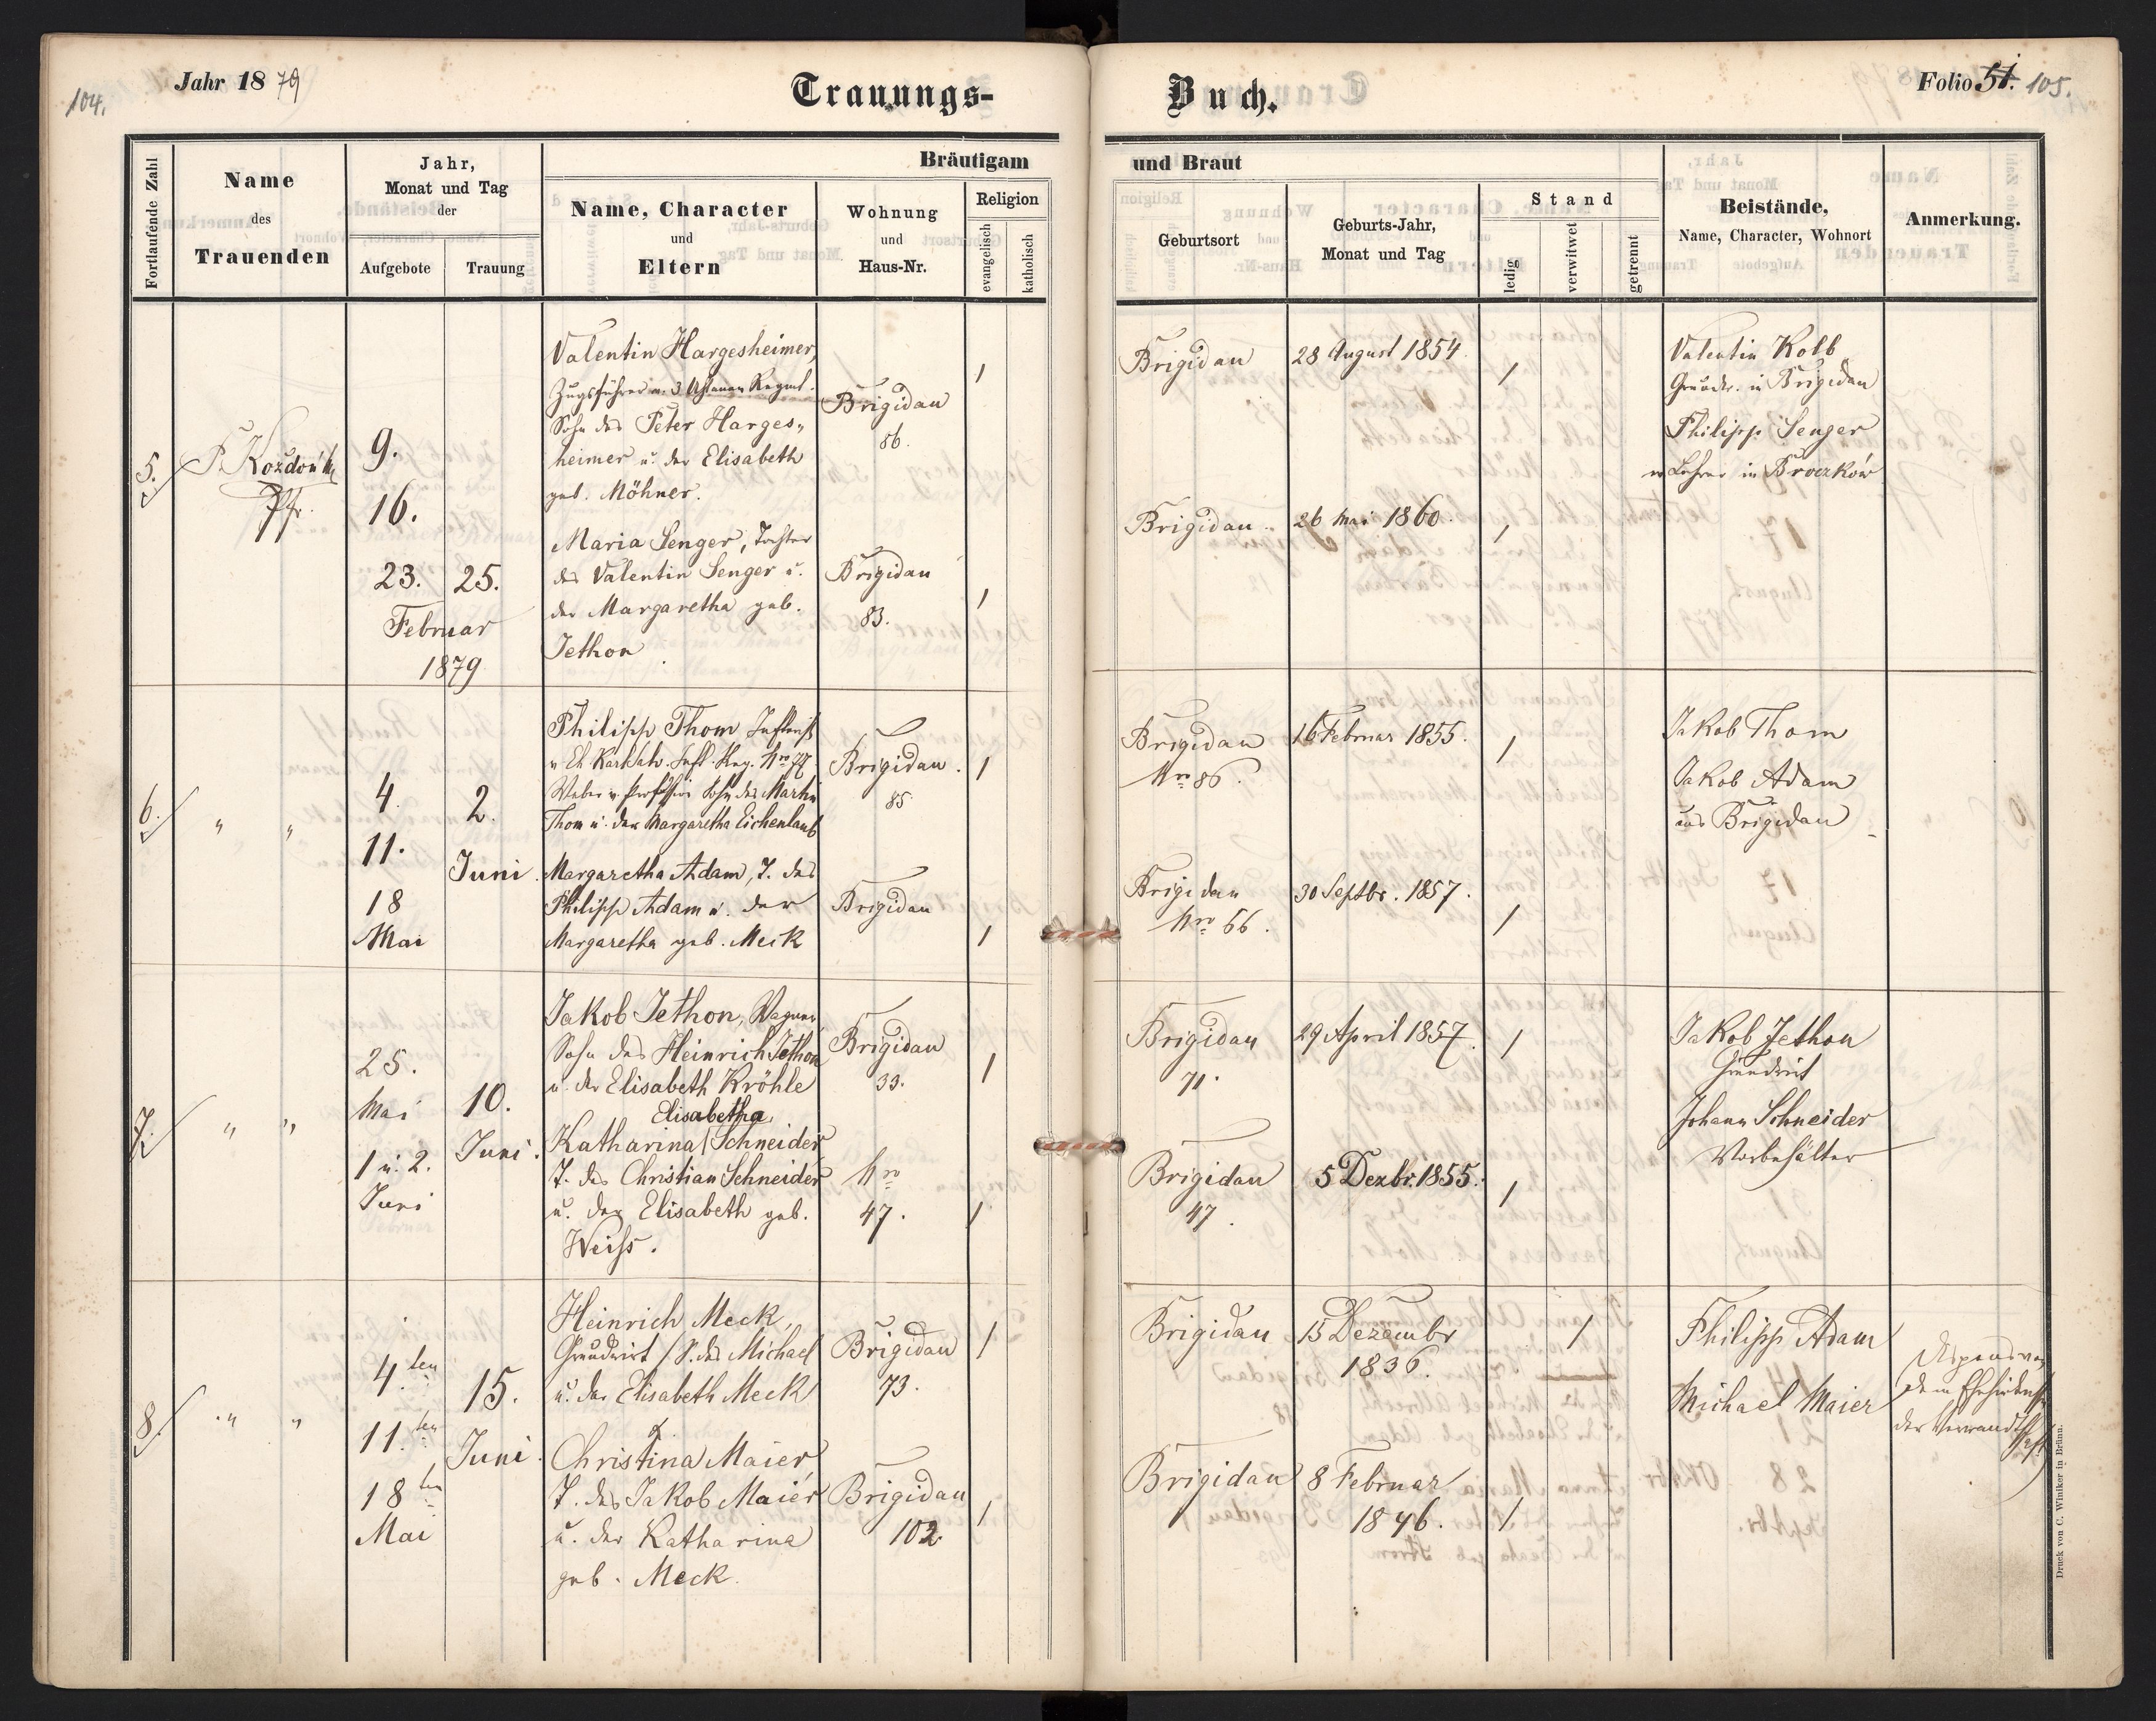 104.
Jahr 1879
Trauungs-
Buch.
Folio 51. 105.
Fortlaufende Zahl
Name
des
Trauenden
Jahr,
Monat und Tag
der
Aufgebote
Trauung
Bräutigam
und Braut
Name, Character
und
Eltern
Wohnung
und
Haus-Nr.
Religion
evangelisch
katholisch
Geburtsort
Geburts-Jahr,
Monat und Tag
Stand
ledig
verwitwet
getrennt
Beistände,
Name, Character, Wohnort
Anmerkung.
5.
Pfr.
9.
16.
23.
25.
Februar
1879
Valentin Hargesheimer,
Zugsführer 3 Uhlanen Regmt.
Sohn des Peter Harges„
heimer u. der Elisabeth
geb. Möhner.
Brigidau
86.
/
Maria Senger, Tochter
des Valentin Senger u.
der Margaretha geb.
Jethon
Brigidau
83.
/
Brigidau
28 August 1854.
/
Brigidau
26 Mai 1860.
/
Valentin Kolb
Grundw. in Brigidau
Philipp Senger
Lehrer in Broczków
6.
" "
4.
11.
18
Mai
2.
Juni.
Philipp Thom
Inft. Reg. Nro 77
Weber v. Profession Sohn des Martin
Thom u. der Margaretha Eichenlaub
Brigidau.
85.
/
Margaretha Adam, T. des
Philipp Adam u. der
Margaretha geb. Meck
Brigidau
/
Brigidau
Nro 86.
16 Februar 1855.
/
Brigidau
Nro 66.
30 Septbr. 1857.
/
Jakob Thom
Jakob Adam
aus Brigidau
7.
" "
25.
Mai
1 u. 2.
Juni
10.
Juni.
Jakob Jethon, Wagner,
Sohn des Heinrich Jethon
u. der Elisabeth Kröhle
Brigidau
33.
/
Elisabetha
Katharina / Schneider
T. des Christian Schneider
u. der Elisabeth geb.
Weiss.
Nro
47.
/
Brigidau
71.
29 April 1857.
/
Brigidau
47.
5 Dezbr. 1855.
/
Jakob Jethon
Grundwirt
Johann Schneider
8.
" "
4.ten
11.ten
18ten
Mai
15.
Juni.
Heinrich Meck,
Grundwirt / S. des Michael
u. der Elisabeth Meck
Brigidau
73.
/
Christina Maier
T. des Jakob Maier
u. der Katharina
geb. Meck.
Brigidau
102.
/
Brigidau
15 Dezembr
1836.
/
Brigidau
8 Februar
1846.
/
Philipp Adam
Michael Maier
Dispens von
dem Ehehindernis
der Verwandtschaft
Druck von C. Winiker in Brünn.